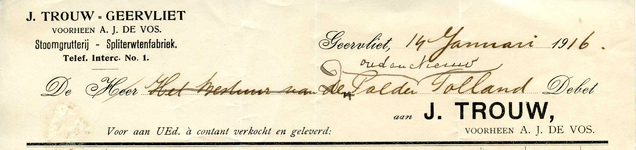 J. TROUW - GEERVLIET
VOORHEEN A. J. DE VOS.
Stoomgrutterij - Spliterwtenfabriek.
Telef. Interc. No. 1.
Geervliet, 14 Januari 1916.
oud en Nieuw
De Heer Het Bestuur van de Polder Tolland Debet
aan J. TROUW,
Voor aan UEd. à contant verkocht en geleverd:
VOORHEEN A. J. DE VOS.